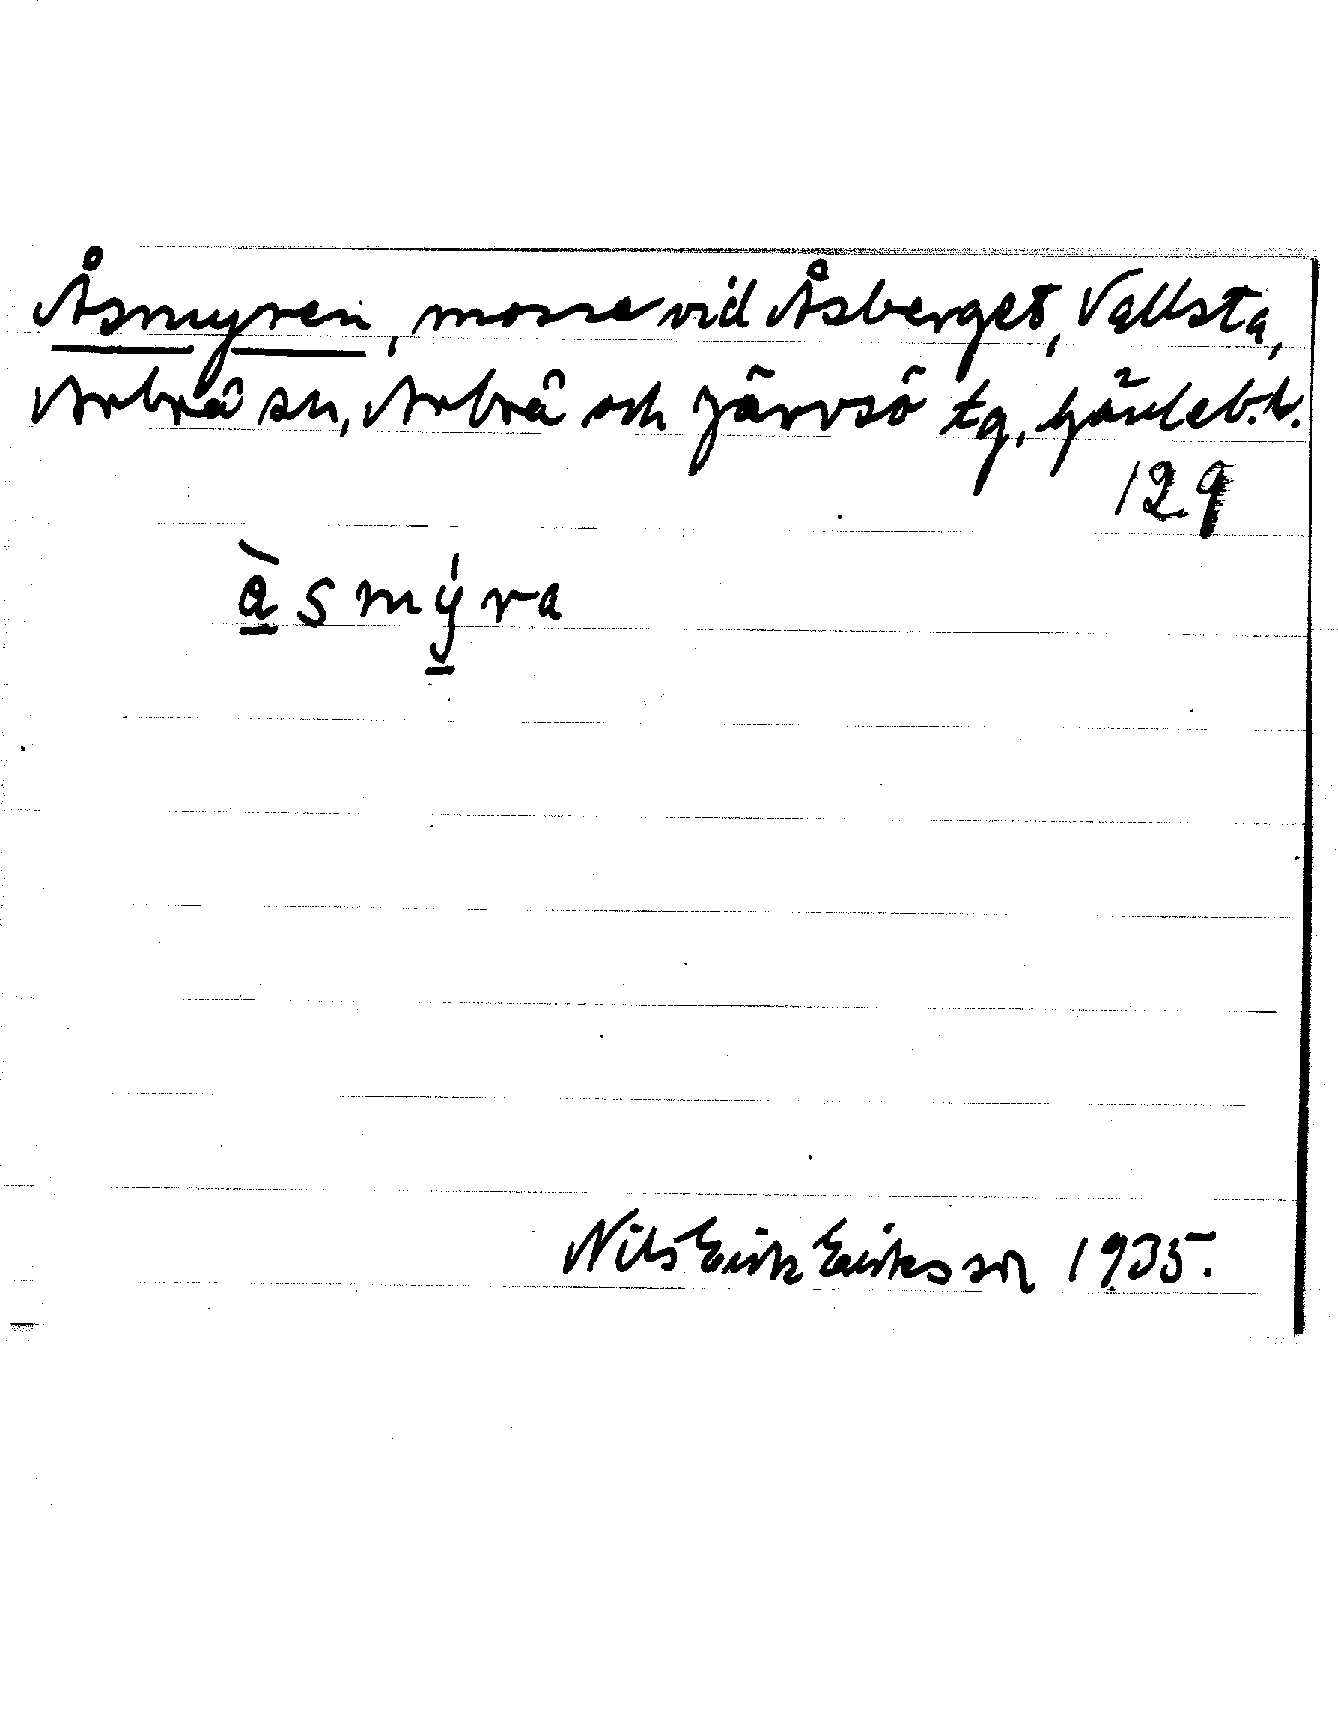 Åsmyren, mosse vid Åsberget, Vallsta,
Arbrå sn, Arbrå och Järvsö tg, Gävleb. l.
129
à̱smý̱ra
Nils Erik Eriksson 1935.